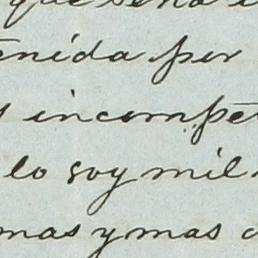 que será
enida por
incompe
lo soy mil
mas y mas